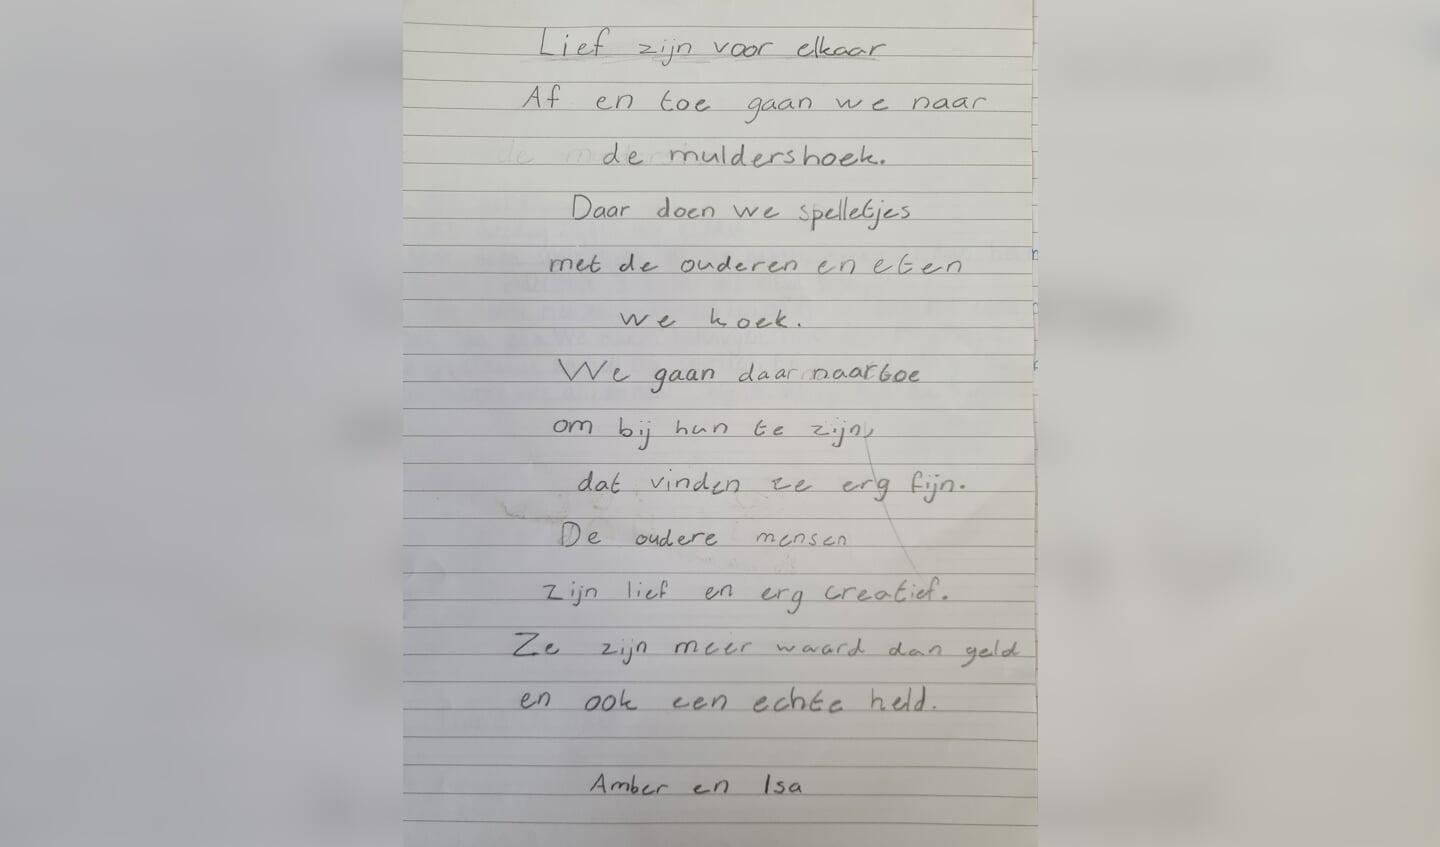 Lief zijn voor elkaar
Af en toe gaan we naar
de muldershoek.
Daar doen we spelletjes
met de ouderen en eten
we koek.
We gaan daar naartoe
om bij hun te zijn,
dat vinden ze erg fijn.
De oudere mensen
zijn lief en erg creatief.
Ze zijn meer waard dan geld
en ook een echte held.
Amber en Isa